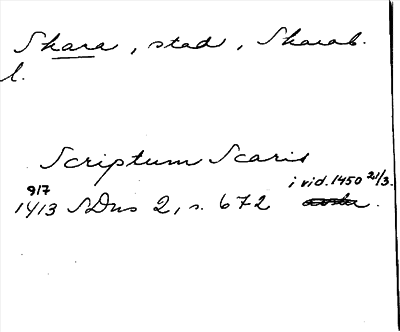 Skara, stad, Skarab.
l.
Scriptum Scaris
9/7 i vid. 1450 21/3.
1413 SDns 2, s. 672 .